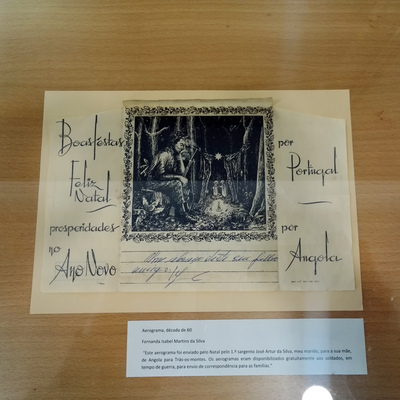 Boas festas
Feliz
Natal
prosperidades
no
Ano Novo
por
Portugal
por
Angola
Um abraço deste seu filho
amigo
Aerograma, década de 60
Fernanda Isabel Martins da Silva
"Este aerograma foi enviado pelo Natal pelo 1.º sargento José Artur da Silva, meu marido, para a sua mãe,
de Angola para Trás-os-montes. Os aerogramas eram disponibilizados gratuitamente aos soldados, em
tempo de guerra, para envio de correspondência para as famílias."